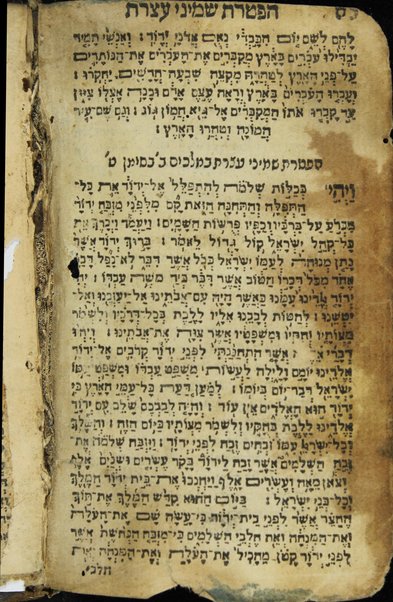 הפטרת שמיני עצרת
לָהֶם לְשֵׁם יוֹם הִכָּבְדִי נְאֻם אֲדֹנָי יְדֹוָד : וְאַנְשֵׁי תָמִיד
יַבְדִּילוּ עֹבְרִים בָּאָרֶץ מְקַבְּרִים אֶת־הָעֹבְרִים אֶת־הַנּוֹתָרִים
עַל־פְּנֵי הָאָרֶץ לְטַהֲרָהּ מִקְצֵה שִׁבְעָה־חֳדָשִׁים יַחְקֹרוּ :
וְעָבְרוּ הָעֹבְרִים בָּאָרֶץ וְרָאָה עֶצֶם אָדָם וּבָנָה אֶצְלוֹ צִיּוּן
עַד קָבְרוּ אֹתוֹ הַמְקַבְּרִים אֶל־גֵּיא הֲמוֹן גּוֹג : וְגַם שֶׁם־עִיר
הֲמוֹנָה וְטִהֲרוּ הָאָרֶץ :
הפטרת שמיני עצרת במלכים ב׳ בסימן ט׳
וַיְהִי כְּכַלּוֹת שְׁלֹמֹה לְהִתְפַּלֵּל אֶל־יְדֹוָד אֵת כָּל־
הַתְּפִלָּה וְהַתְּחִנָּה הַזֹּאת קָם מִלִּפְנֵי מִזְבַּח יְדֹוָד
מִכְּרֹעַ עַל־בִּרְכָּיו וְכַפָּיו פְּרֻשׂוֹת הַשָּׁמָיִם : וַיַּעֲמֹד וַיְבָרֶךְ אֵת
כָּל־קְהַל יִשְׂרָאֵל קוֹל גָּדוֹל לֵאמֹר : בָּרוּךְ יְדֹוָד אֲשֶׁר
נָתַן מְנוּחָה לְעַמּוֹ יִשְׂרָאֵל כְּכֹל אֲשֶׁר דִּבֵּר לֹא־נָפַל דָּבָר
אֶחָד מִכֹּל דְּבָרוֹ הַטּוֹב אֲשֶׁר דִּבֶּר בְּיַד מֹשֶׁה עַבְדּוֹ : יְהִי
יְדֹוָד אֱלֹדֵינוּ עִמָּנוּ כַּאֲשֶׁר הָיָה עִם־אֲבֹתֵינוּ אַל־יַעַזְבֵנוּ וְאַל־
יִטְּשֵׁנוּ : לְהַטּוֹת לְבָבֵנוּ אֵלָיו לָלֶכֶת בְּכָל־דְּרָכָיו וְלִשְׁמֹר
מִצְוֹתָיו וְחֻקָּיו וּמִשְׁפָּטָיו אֲשֶׁר צִוָּה אֶת־אֲבֹתֵינוּ : וְיִהְיוּ
דְבָרַי אֵ אֲשֶׁר הִתְחַנַּנְתִּי לִפְנֵי יְדֹוָד קְרֹבִים אֶל־יְדֹוָד
אֱלֹדֵינוּ יוֹמָם וָלָיְלָה לַעֲשׂוֹת מִשְׁפַּט עַבְדּוֹ וּמִשְׁפַּט עַמּוֹ
יִשְׂרָאֵל דְּבַר־יוֹם בְּיוֹמוֹ : לְמַעַן דַּעַת כָּל־עַמֵּי הָאָרֶץ כִּי
יְדֹוָד הוּא הָאֱלֹדִים אֵין עוֹד : וְהָיָה לְבַבְכֶם שָׁלֵם עִם יְדֹוָד
אֱלֹדֵינוּ לָלֶכֶת בְּחֻקָּיו וְלִשְׁמֹר מִצְוֹתָיו כַּיּוֹם הַזֶּה : וְהַמֶּלֶךְ
וְכָל־יִשְׂרָאֵל עִמּוֹ זֹבְחִים זֶבַח לִפְנֵי יְדֹוָד : וַיִּזְבַּח שְׁלֹמֹה אֵת
זֶבַח הַשְּׁלָמִים אֲשֶׁר זָבַח לַידֹוָד בָּקָר עֶשְׂרִים וּשְׁנַיִם אֶלֶף
וְצֹאן מֵאָה וְעֶשְׂרִים אָלֶף וַיַּחְנְכוּ אֶת־בֵּית יְדֹוָד הַמֶּלֶךְ
וְכָל־בְּנֵי יִשְׂרָאֵל : בַּיּוֹם הַהוּא קִדַּשׁ הַמֶּלֶךְ אֶת־תּוֹךְ
הֶחָצֵר אֲשֶׁר לִפְנֵי בֵית־יְדֹוָד כִּי־עָשָׂה שָׁם אֶת־הָעֹלָה
וְאֶת־הַמִּנְחָה וְאֵת חֶלְבֵי הַשְּׁלָמִים כִּי־מִזְבַּח הַנְּחֹשֶׁת אֲשֶׁר
לִפְנֵי יְדֹוָד קָטֹן מֵהָכִיל אֶת־הָעֹלָה וְאֶת־הַמִּנְחָה וְאֵת
חלבי